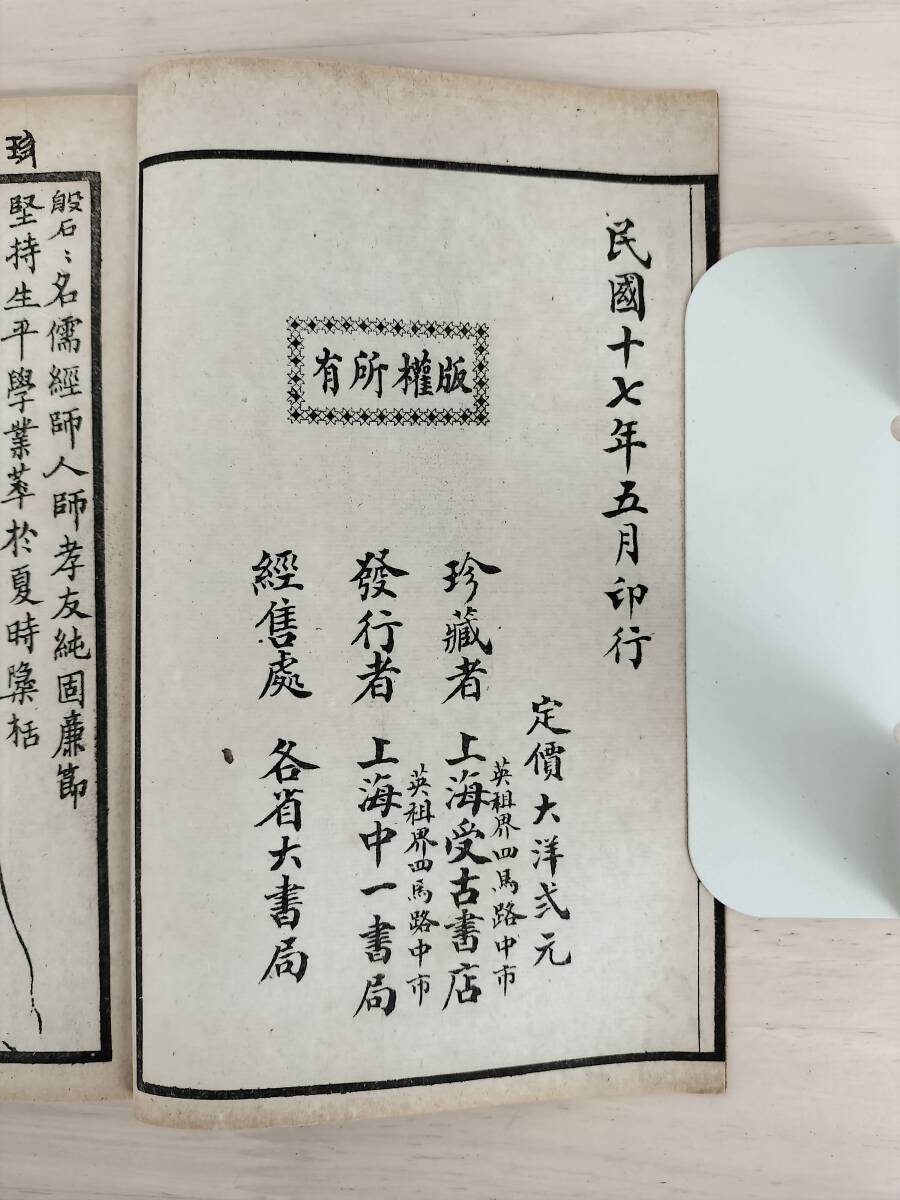 民國十七年五月印行
版權所有
定價大洋弍元
英租界四馬路中市
珍藏者 上海受古書店
英租界四馬路中市
發行者 上海中一書局
經售處 各省大書局
磐石〻名儒經師人師孝友純固廉節
堅持生平學業萃於夏時槩栝